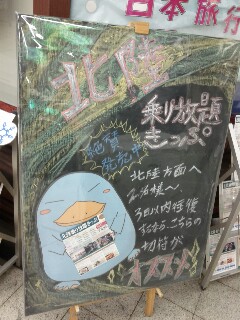 日本旅行
北陸
乗り放題
きっぷ
絶賛
発売中
北陸方面へ
2名様〜
3日以内往復
するならこちらの
切符が
オススメ!